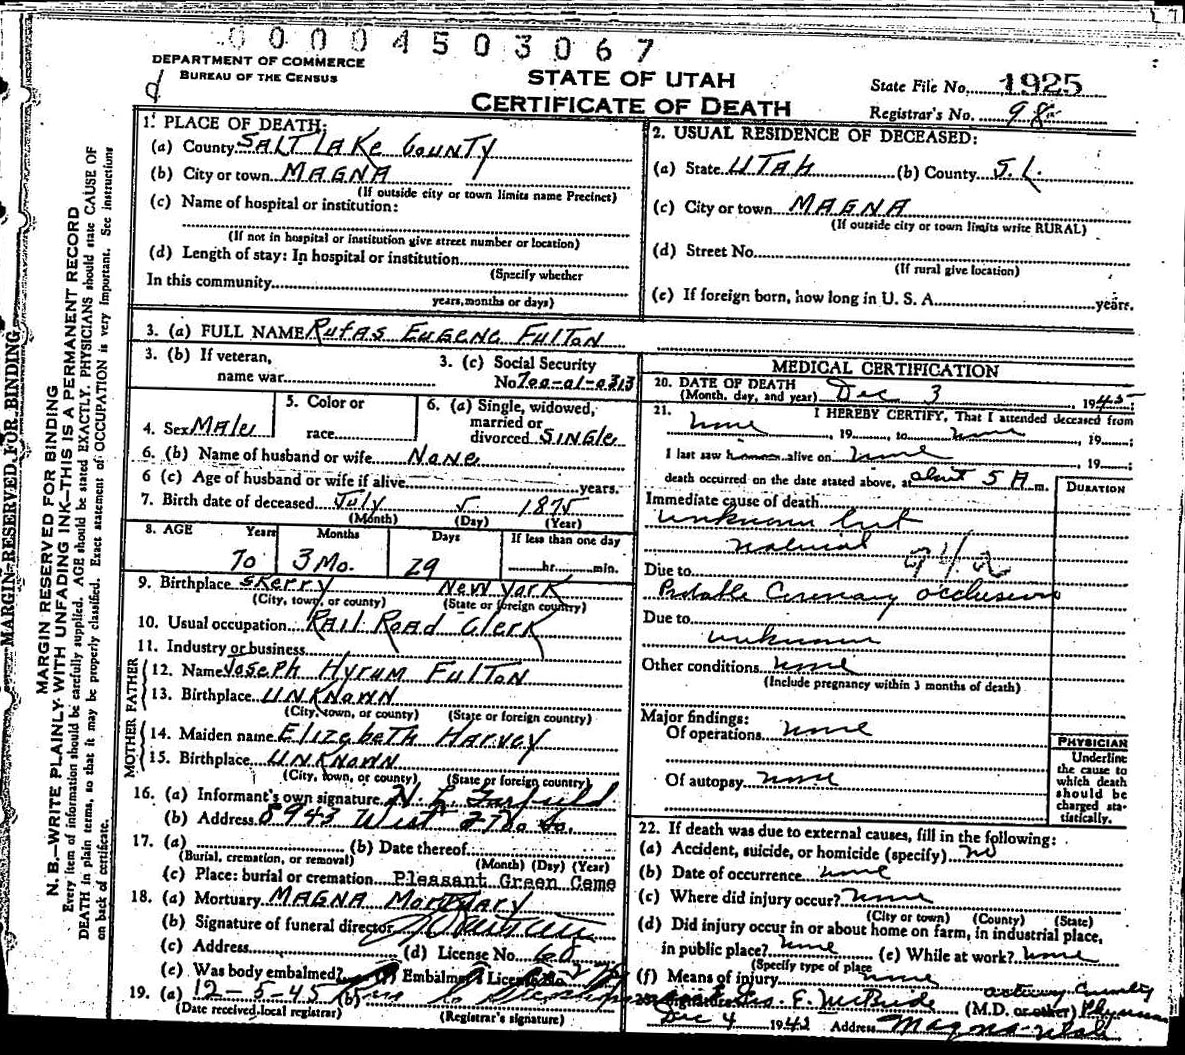 0 0 0 0 4 5 0 3 0 6 7
DEPARTMENT OF COMMERCE
BUREAU OF THE CENSUS
d
STATE OF UTAH
CERTIFICATE OF DEATH
State File No. 1925
Registrar's No. 98
MARGIN RESERVED FOR BINDING
MARGIN RESERVED FOR BINDING
N. B.—WRITE PLAINLY WITH UNFADING INK—THIS IS A PERMANENT RECORD
Every item of information should be carefully supplied. AGE should be stated EXACTLY. PHYSICIANS should state CAUSE OF
DEATH in plain terms, so that it may be properly classified. Exact statement of OCCUPATION is very important. See instructions
on back of certificate.
1. PLACE OF DEATH:
(a) County SALT LAKE COUNTY
(b) City or town MAGNA
(If outside city or town limits name Precinct)
(c) Name of hospital or institution:
(If not in hospital or institution give street number or location)
(d) Length of stay: In hospital or institution
(Specify whether
In this community
years, months or days)
2. USUAL RESIDENCE OF DECEASED:
(a) State UTAH (b) County S. L.
(c) City or town MAGNA
(If outside city or town limits write RURAL)
(d) Street No.
(If rural give location)
(e) If foreign born, how long in U. S. A. years.
3. (a) FULL NAME RUFAS EUGENE FULTON
3. (b) If veteran,
name war
3. (c) Social Security
No. 700-01-0313
4. Sex MALE
5. Color or
race
6. (a) Single, widowed,
married or
divorced SINGLE
6. (b) Name of husband or wife NONE
6 (c) Age of husband or wife if alive years.
7. Birth date of deceased July 5 1875
(Month) (Day) (Year)
8. AGE Years Months Days If less than one day
70 3 Mo. 29 hr. min.
9. Birthplace SKERRY NEW YORK
(City, town, or county) (State or foreign country)
10. Usual occupation RAIL ROAD CLERK
11. Industry or business
FATHER
12. Name JOSEPH HYRUM FULTON
13. Birthplace UNKNOWN
(City, town, or county) (State or foreign country)
MOTHER
14. Maiden name ELIZEBETH HARVEY
15. Birthplace UNKNOWN
(City, town, or county) (State or foreign country)
16. (a) Informant's own signature H. L. Garfield
(b) Address 8943 West 2700 So.
17. (a) (b) Date thereof
(Burial, cremation, or removal) (Month) (Day) (Year)
(c) Place: burial or cremation Pleasant Green Ceme
18. (a) Mortuary MAGNA MORTUARY
(b) Signature of funeral director
(c) Address (d) License No. 60
(e) Was body embalmed? (f) Embalmer's License No.
19. (a) 12-5-45 (b)
(Date received local registrar) (Registrar's signature)
MEDICAL CERTIFICATION
20. DATE OF DEATH
(Month, day, and year) Dec 3 1945
21. I HEREBY CERTIFY, That I attended deceased from
none, 19 , to none, 19 ;
I last saw h alive on none, 19 ;
death occurred on the date stated above, at about 5 A m.
DURATION
Immediate cause of death
unknown but
natural
942
Due to
Probable Coronary occlusion
Due to
unknown
Other conditions none
(Include pregnancy within 3 months of death)
Major findings:
Of operations none
Of autopsy none
PHYSICIAN
Underline
the cause to
which death
should be
charged sta-
tistically.
22. If death was due to external causes, fill in the following:
(a) Accident, suicide, or homicide (specify) no
(b) Date of occurrence none
(c) Where did injury occur? none
(City or town) (County) (State)
(d) Did injury occur in or about home on farm, in industrial place,
in public place? none (e) While at work? none
(Specify type of place
(f) Means of injury none
acting County
E. McBride (M.D. or other) Physician
Dec 4 1942 Address Magna Utah